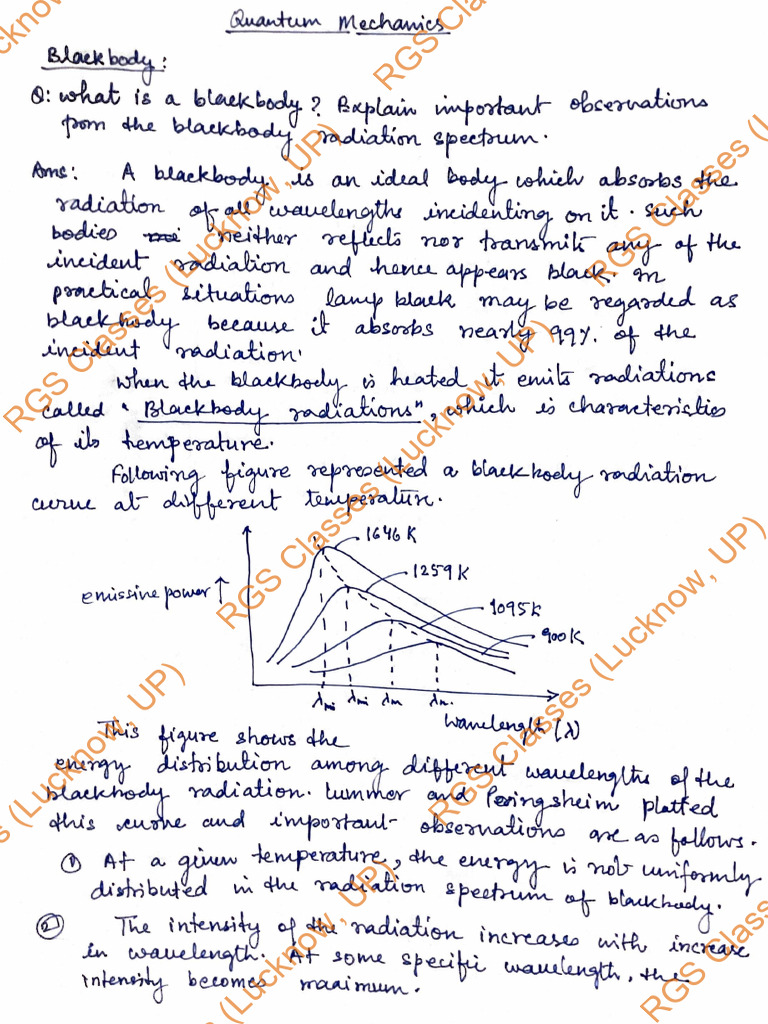 Quantum Mechanics
Blackbody:
Q: what is a blackbody? Explain important observations
from the blackbody radiation spectrum.
Ans: A blackbody is an ideal body which absorbs the
radiation of all wavelengths incidenting on it. Such
bodies neither reflects nor transmits any of the
incident radiation and hence appears black. In
practical situations lamp black may be regarded as
blackbody because it absorbs nearly 99% of the
incident radiation.
When the blackbody is heated it emits radiations
called "Blackbody radiations", which is characteristics
of its temperature.
Following figure represented a blackbody radiation
curve at different temperature.
1646 K
1259 K
emissive power ↑
1095 K
900 K
λm λm λm λm
Wavelength (λ)
This figure shows the
energy distribution among different wavelengths of the
blackbody radiation. Lummer and Peringsheim plotted
this curve and important observations are as follows.
① At a given temperature, the energy is not uniformly
distributed in the radiation spectrum of blackbody.
② The intensity of the radiation increases with increase
in wavelength. At some specific wavelength, the
intensity becomes maximum.
RGS Classes (Lucknow, UP)